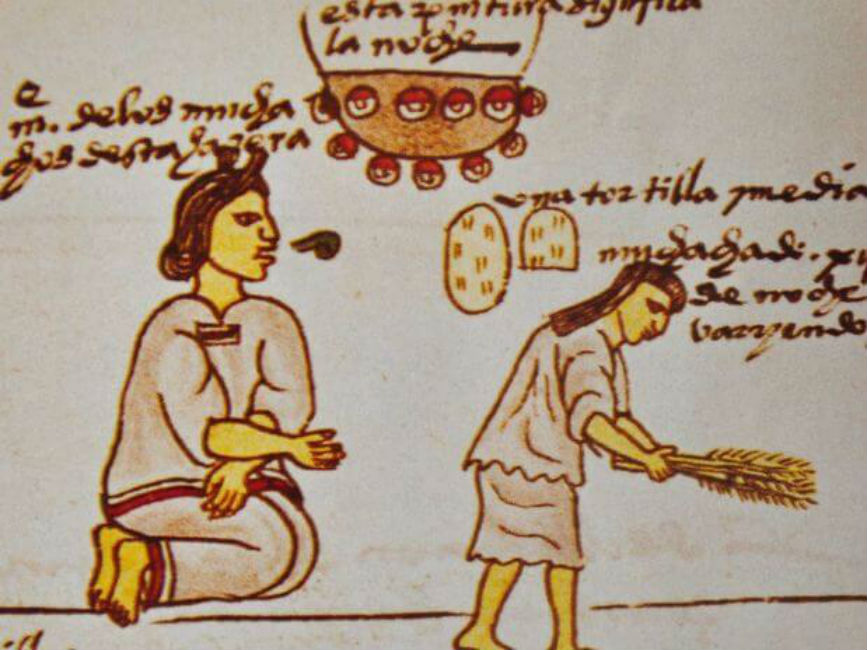 esta pintura significa
la noche
m. de los mucha
chos desta ha zera
una tortilla y media
muchacha de
de noche
varriendo